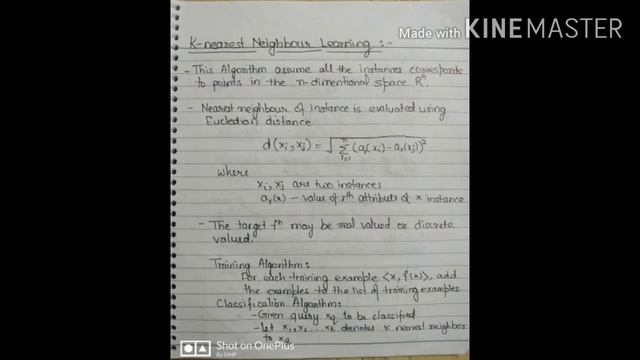 Made with KINEMASTER
K-nearest Neighbour Learning :-
- This Algorithm assume all the instances corresponds
to points in the n-dimentional space Rⁿ.
- Nearest neighbour of instance is evaluated using
Eucledian distance
d(xi, xj) = √ Σ_{r=1}^{n} (ar(xi) - ar(xj))²
where
xi, xj are two instances
ar(x) - value of rth attribute of x instance
- The target fⁿ may be real valued or discrete
valued.
Training Algorithm:
For each training example <x, f(x)>, add
the examples to the list of training examples.
Classification Algorithm:
- Given query xq to be classified
- Let x1, x2 ... xk denotes K nearest neighbor
to xq
Shot on OnePlus
By DMP